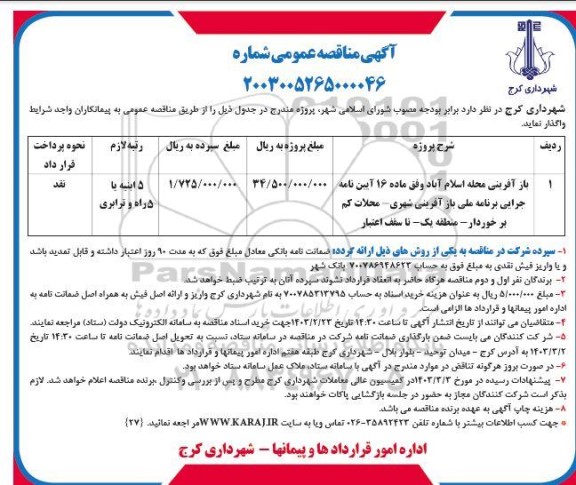 آگهی مناقصه عمومی شماره
۲۰۰۳۰۰۵۲۶۵۰۰۰۰۴۶
شهرداری کرج
شهرداری کرج در نظر دارد برابر بودجه مصوب شورای اسلامی شهر، پروژه مندرج در جدول ذیل را از طریق مناقصه عمومی به پیمانکاران واجد شرایط
واگذار نماید.
ردیف شرح پروژه مبلغ پروژه به ریال مبلغ سپرده به ریال رتبه لازم نحوه پرداخت
قرار داد
۱ باز آفرینی محله اسلام آباد وفق ماده ۱۶ آیین نامه ۳۴/۵۰۰/۰۰۰/۰۰۰ ۱/۷۲۵/۰۰۰/۰۰۰ ۵ ابنیه یا نقد
جرایی برنامه ملی باز آفرینی شهری – محلات کم ۵راه و ترابری
بر خوردار– منطقه یک– تا سقف اعتبار
۱- سپرده شرکت در مناقصه به یکی از روش های ذیل ارائه گردد: ضمانت نامه بانکی معادل مبلغ فوق که به مدت ۹۰ روز اعتبار داشته و قابل تمدید باشد
و یا واریز فیش نقدی به مبلغ فوق به حساب ۷۰۰۷۸۶۹۴۸۶۲۳ بانک شهر
۲- برندگان نفر اول و دوم مناقصه هرگاه حاضر به انعقاد قرارداد نشوند سپرده آنان به ترتیب ضبط خواهد شد.
۳- مبلغ ۵/۰۰۰/۰۰۰ ریال به عنوان هزینه خرید اسناد به حساب ۷۰۰۷۸۵۳۱۳۷۹۵ به نام شهرداری کرج واریز و ارائه اصل فیش به همراه اصل ضمانت نامه به
اداره امور پیمانها و قراردادها الزامی است.
۴- متقاضیان می توانند از تاریخ انتشار آگهی تا ساعت ۱۴:۳۰ تاریخ ۱۴۰۳/۲/۲۳جهت خرید اسناد مناقصه به سامانه الکترونیک دولت (ستاد) مراجعه نمایند.
۵- شرکت کنندگان می بایست ضمن بارگذاری ضمانت نامه شرکت در مناقصه در سامانه ستاد، نسبت به تحویل اصل ضمانت نامه تا ساعت ۱۴:۳۰ تاریخ
۱۴۰۳/۳/۲ به آدرس کرج – میدان توحید – بلوار بلال – شهرداری کرج طبقه هفتم اداره امور پیمانها و قرارداد ها اقدام نمایند.
۶- در صورت بروز هرگونه تناقض در موارد مندرج در آگهی با سامانه ستاد،ملاک عمل سامانه ستاد خواهد بود.
۷- پیشنهادات رسیده در مورخ ۱۴۰۳/۳/۳در کمیسیون عالی معاملات شهرداری کرج مطرح و پس از بررسی وکنترل ،برنده مناقصه اعلام خواهد شد. لازم
بذکر است شرکت کنندگان مجاز به حضور در جلسه بازگشایی پاکات خواهند بود.
۸- هزینه چاپ آگهی به عهده برنده مناقصه می باشد.
جهت کسب اطلاعات بیشتر با شماره تلفن ۳۵۸۹۲۴۲۳-۰۲۶ تماس ویا به سایت WWW.KARAJ.IR در اجعه نمائید. {۲۷}
اداره امور قرارداد ها و پیمانها – شهرداری کرج